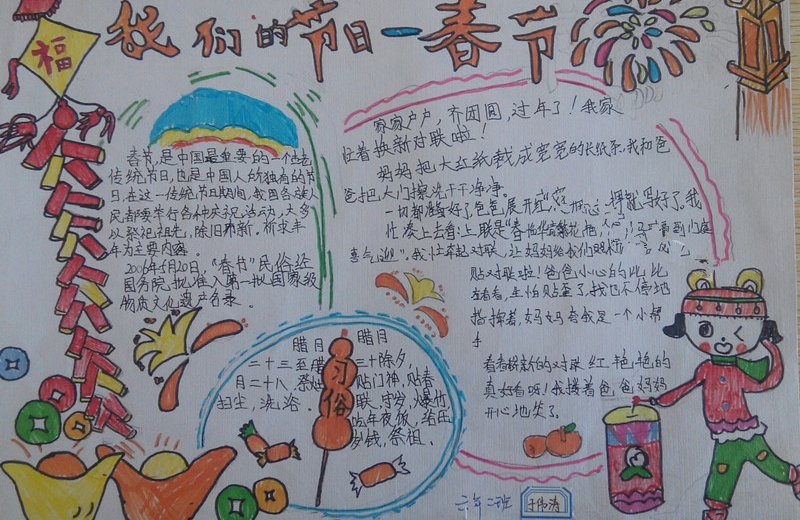 我们的节日—春节
福
春节,是中国最重要的一个
传统节日,也是中国人所独有的节
日,在这一传统节日期间,我国各族人
民都要举行各种庆祝活动,大多
以祭祀祖先,除旧布新。祈求丰
年为主要内容。
2006年5月20日,“春节”民俗经
国务院批准入第一批国家级
物质文化遗产名录。
家家户户,齐团圆,过年了!我家
忙着换新对联啦!
妈妈把大红纸裁成宽宽的长纸条,我和爸
爸把大门擦洗干干净净。
一切都准备好了,爸爸展开红
忙凑上去看:上联是“春
喜气迎”。我忙牵起对联,让妈妈给我们
贴对联啦!爸爸小心的比比
左看看,生怕贴歪了,我也不停地
指挥着,妈妈夸我是一个小帮
手
看着崭新的对联红艳艳的
真好看呀!我搂着爸爸妈妈
开心地笑了。
习俗
腊月
二十三至腊
月二十八祭灶
扫尘,洗浴。
腊月
三十除夕,
贴门神,贴春
联,守岁,爆竹
吃年夜饭,给压
岁钱,祭祖。
六年二班